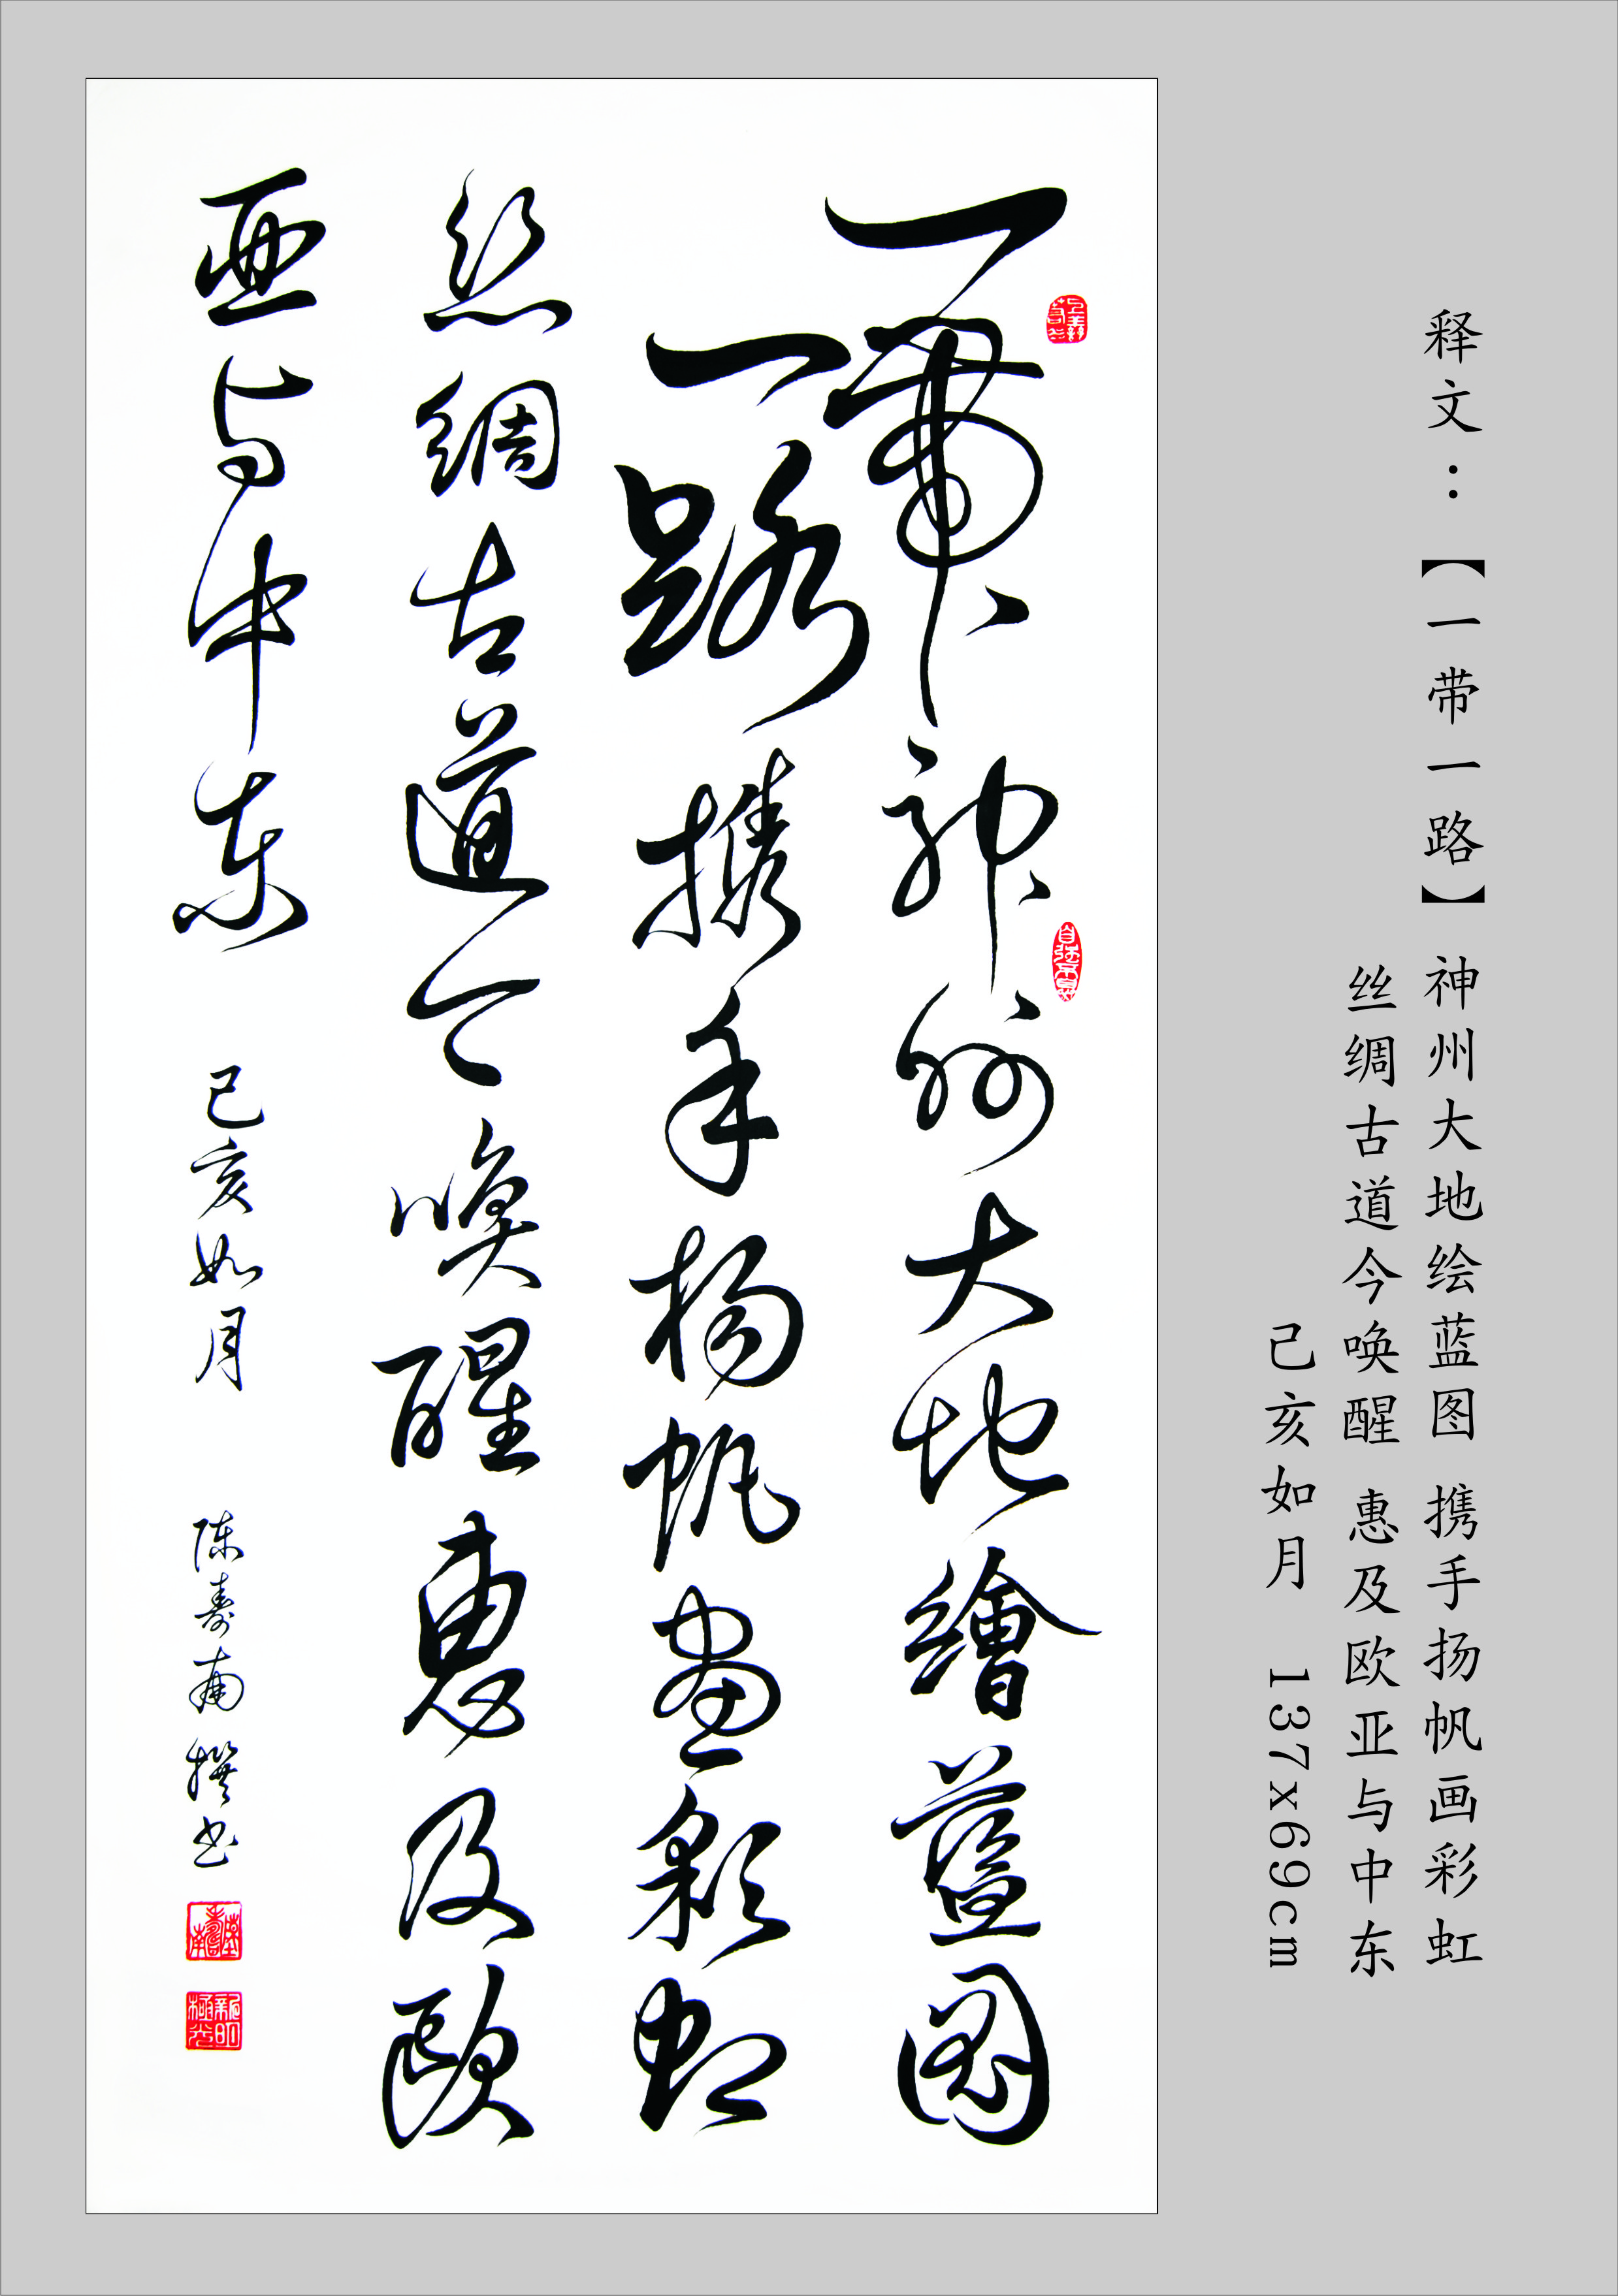 释文：【一带一路】神州大地绘蓝图 携手扬帆画彩虹
丝绸古道今唤醒 惠及欧亚与中东
己亥如月 137x69cm
一带神州大地繪藍图
一路携手揚帆画彩虹
丝綢古道今唤醒惠及歐
亜与中东 己亥如月 陈寿南撰书
自强不息